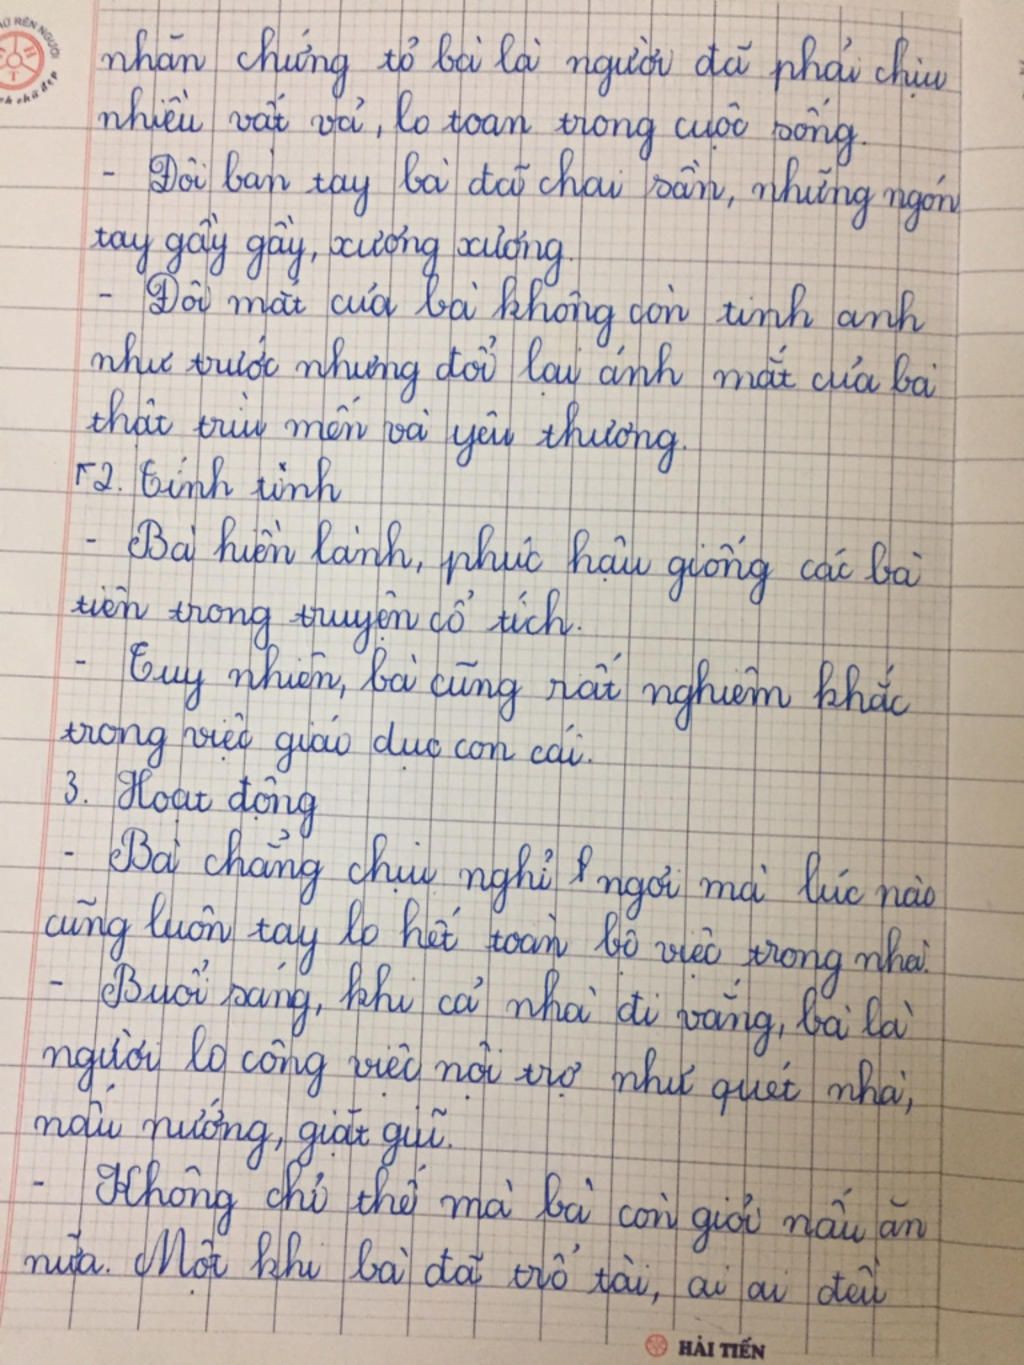 RÈN NGƯỜI
chữ đẹp
nhăn chứng tỏ bà là người đã phải chịu
nhiều vất vả, lo toan trong cuộc sống.
- Đôi bàn tay bà đã chai sần, những ngón
tay gầy gầy, xương xương.
- Đôi mắt của bà không còn tinh anh
như trước nhưng đổi lại ánh mắt của bà
thật trìu mến và yêu thương.
2. Tính tình
- Bà hiền lành, phúc hậu giống các bà
tiên trong truyện cổ tích.
- Tuy nhiên, bà cũng rất nghiêm khắc
trong việc giáo dục con cái.
3. Hoạt động
- Bà chẳng chịu nghỉ ngơi mà lúc nào
cũng luôn tay lo hết toàn bộ việc trong nhà.
- Buổi sáng, khi cả nhà đi vắng, bà là
người lo công việc nội trợ như quét nhà,
nấu nướng, giặt giũ.
- Không chỉ thế mà bà còn giỏi nấu ăn
nữa. Một khi bà đã trổ tài, ai ai đều
HẢI TIẾN